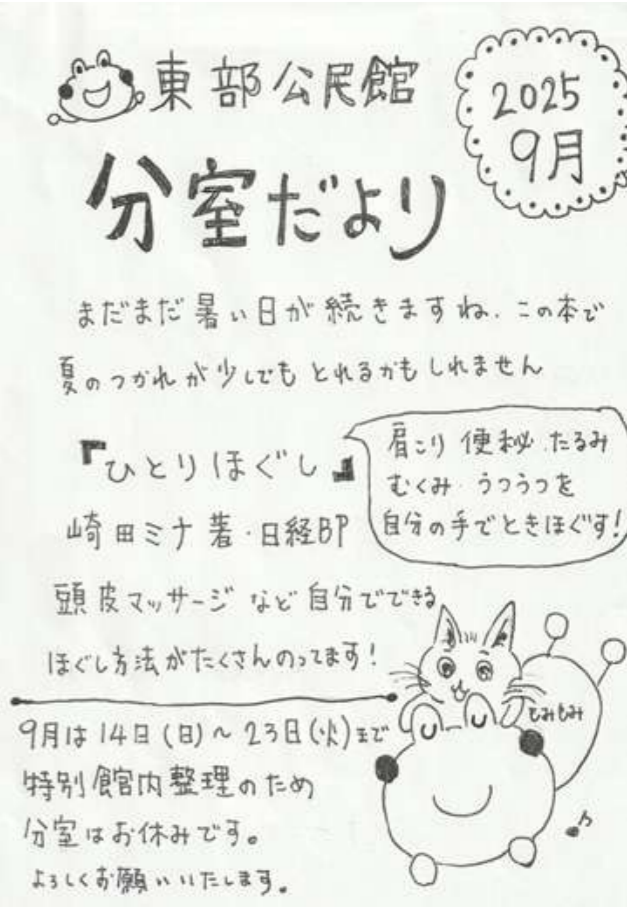 東部公民館
2025
9月
分室だより
まだまだ暑い日が続きますね．この本で
夏のつかれが少しでもとれるかもしれません
『ひとりほぐし』
崎田ミナ著・日経BP
肩こり 便秘．たるみ
むくみ．うつうつを
自分の手でときほぐす！
頭皮マッサージなど自分でできる
ほぐし方法がたくさんのってます！
もみもみ
9月は14日(日)～23日(火)まで
特別館内整理のため
分室はお休みです。
よろしくお願いいたします。